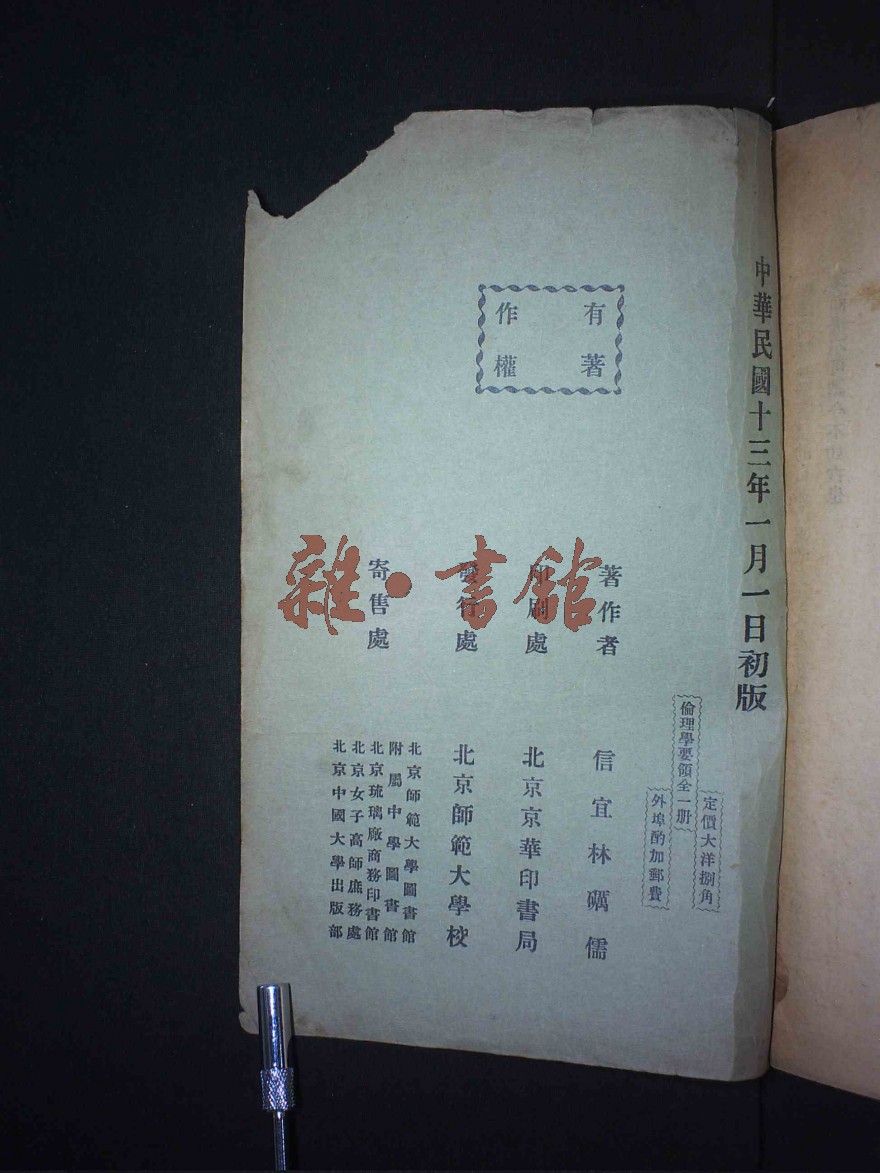 中華民國十三年一月一日初版
定價大洋捌角
倫理學要領全一册
外埠酌加郵費
有著
作權
著作者 信宜林礪儒
印刷處 北京京華印書局
發行處 北京師範大學校
寄售處
北京師範大學圖書館
附屬中學圖書館
北京琉璃廠商務印書館
北京女子高師庶務處
北京中國大學出版部
雜·書館